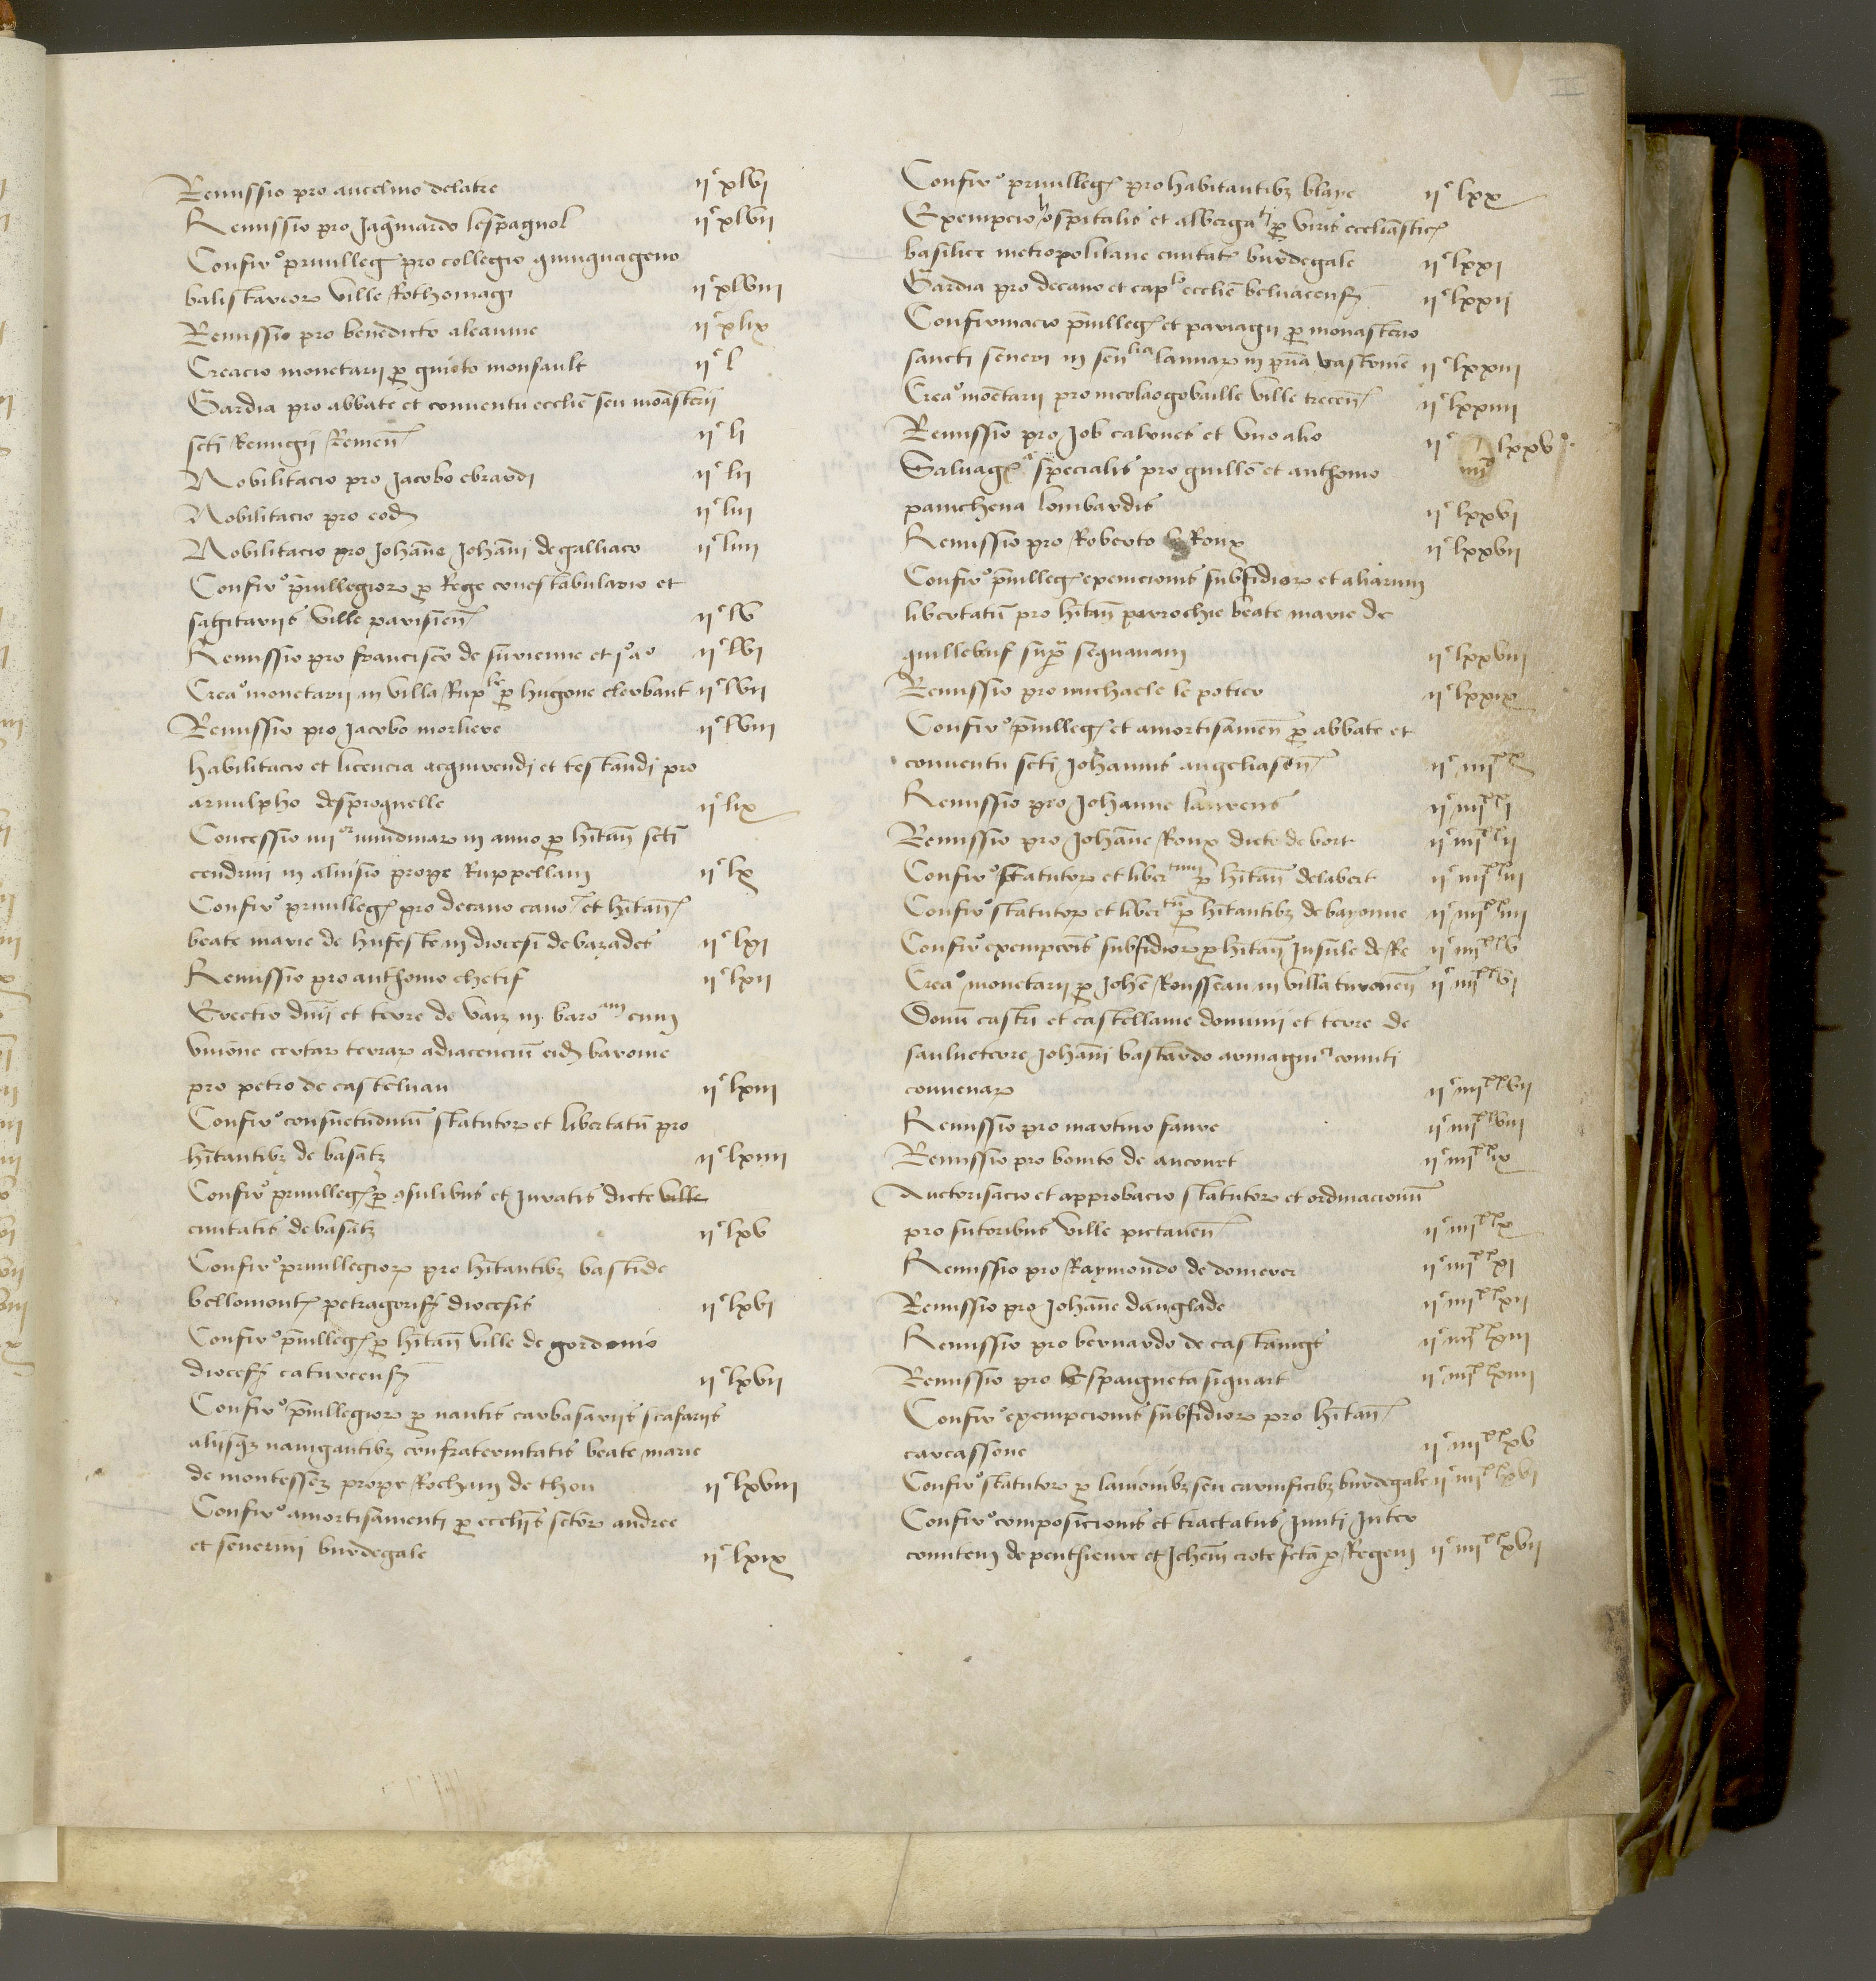 Remissio pro ancelmo delatre iiᶜ xlvi
Remissio pro Jaquinardo lespagnol iiᶜ xlvii
Confirº privilleg pro collegio quinquageno
balistareorꝝ ville Rothomagi iiᶜ xlviii
Remissio pro benedicto aleaume iiᶜ xlix
Creacio monetarii ꝑ guioto monsault iiᶜ l
Gardia pro abbate et conventu ecclie seu monasterii
scti Remigii Remen iiᶜ li
Nobilitacio pro Jacobo ebrardi iiᶜ lii
Nobilitacio pro eod iiᶜ liii
Nobilitacio pro Johanne Johanni de galliaco iiᶜ liiii
Confirº privillegiorꝝ ꝑ Rege conestabulario et
sagitariis ville parisien iiᶜ lv
Remissio pro francisco de surienne et iº aº iiᶜ lvi
Creaº monetarii in villa Rupˡᵉ ꝑ hugone clerbaut iiᶜ lvii
Remissio pro Jacobo morliere iiᶜ lviii
habilitacio et licencia acquirendi et testandi pro
arnulpho desproquelle iiᶜ lix
Concessio iiiiᵒʳ nundinarꝝ in anno ꝑ hitan scti
cendrini in alnisio prope Ruppellam iiᶜ lx
Confirº privilleg pro decano cano et hitan
beate marie de huseste in diocesi de bazades iiᶜ lxi
Remissio pro anthonio chetif iiᶜ lxii
Erectio dnii et terre de in baroᵃᵐ cum
unione certarꝝ terrarꝝ adiacencium eid baronie
pro petro de castelnau iiᶜ lxiii
Confirº consuetudinum statutorꝝ et libertatum pro
hitantibꝫ de basatz iiᶜ lxiiii
Confirº privilleg ꝑ ꝯsulibus et Juratis dicte ville
civitatis de basatz iiᶜ lxv
Confirº privillegiorꝝ pro hitantibꝫ bastide
bellomont petragoricensis diocesis iiᶜ lxvi
Confirº privilleg ꝑ hitan ville de gordonio
diocesis caturcensis iiᶜ lxvii
Confirº privillegiorꝝ ꝑ nautis carbasariis scafariis
aliisqꝫ navigantibꝫ confraternitatis beate marie
de montessez prope Rocham de thou iiᶜ lxviii
Confirº amortisamenti ꝑ ecclis sctorꝝ andree
et severini burdegale iiᶜ lxix
Confirº privilleg pro habitantibꝫ blaye iiᶜ lxx
Exempcio hospitalis et alberga ꝑ viris ecclasticꝭ
basilice metropolitane civitatꝭ burdegale iiᶜ lxxi
Gardia pro decano et capˡᵒ ecclie belvacensis iiᶜ lxxii
Confirmacio privilleg et pariagii ꝑ monasterio
sancti severi in senˡⁱᵃ lannarꝝ in pria vasconie iiᶜ lxxiii
Creaº monetarii pro nicolao gobaille ville trecen iiᶜ lxxiiii
Remissio pro Job calvnes et uno alio iiᶜ lxxvº
Salvagᵃ specialis pro guillo et anthonio
panichena lombardis iiᶜ lxxvi
Remissio pro Roberto le Roux iiᶜ lxxvii
Confirº privilleg exempcionis subsidiorꝝ et aliarum
libertatum pro hitan parrochie beate marie de
quillebuf supra sequanam iiᶜ lxxviii
Remissio pro michaele le potier iiᶜ lxxix
Confirº privilleg et amortisamen ꝑ abbate et
conventu scti Johannis angeliasen iiᶜ iiiiˣˣ
Remissio pro Johanne laurens iiᶜ iiiiˣˣ i
Remissio pro Johanne Roux dicto de bort iiᶜ iiiiˣˣ ii
Confirº statutorꝝ et liberᵗᵘᵐ ꝑ hitan delabert iiᶜ iiiiˣˣ iii
Confirº statutorꝝ et liberᵗᵘᵐ ꝑ hitantibꝫ de bayonne iiᶜ iiiiˣˣ iiii
Confirº exempcois subsidiorꝝ ꝑ hitan Insule de Re iiᶜ iiiiˣˣ v
Creaº monetarii ꝑ Johe Rousseau in villa turonen iiᶜ iiiiˣˣ vi
Donum castri et castellanie dominii et terre de
sauveterre Johanni bastardo armagnᶜⁱ comiti
convenarꝝ iiᶜ iiiiˣˣ vii
Remissio pro martino faure iiᶜ iiiiˣˣ viii
Remissio pro bonito de anconet iiᶜ iiiiˣˣ ix
Auctorisacio et approbacio statutorꝝ et ordinacionum
pro sutoribus ville pictaven iiᶜ iiiiˣˣ x
Remissio pro Raymondo de domerer iiᶜ iiiiˣˣ xi
Remissio pro Johanne danglade iiᶜ iiiiˣˣ xii
Remissio pro bernardo de castaings iiᶜ iiiiˣˣ xiii
Remissio pro Espaigneta siquart iiᶜ iiiiˣˣ xiiii
Confirº exempcionis subsidiorꝝ pro hitan
carcassone iiᶜ iiiiˣˣ xv
Confirº statutorꝝ ꝑ lanionibꝫ seu carnificibꝫ burdegale iiᶜ iiiiˣˣ xvi
Confirº composicionis et tractatus initi Inter
comitem de penthievre et Johem crote scta ꝑ Regem iiᶜ iiiiˣˣ xvii